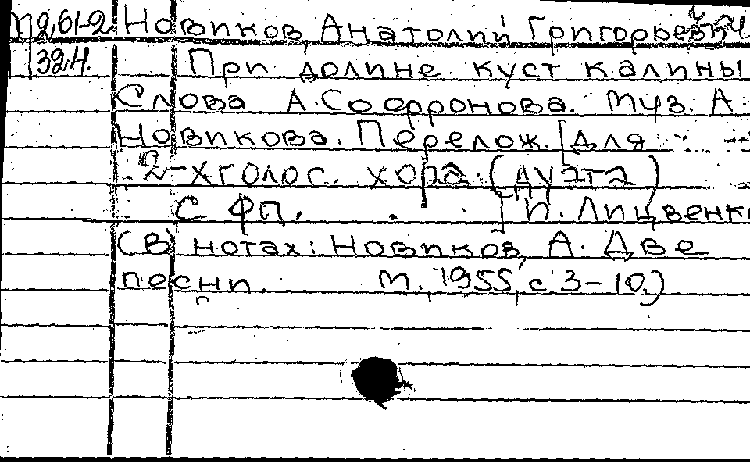 М2,61-2 Новиков, Анатолий Григорьевич
32,4. При долине куст калины
Слова А. Софронова. Муз. А.
Новикова. Перелож. [для
2-хголос. хора (дуэта)
с фп. . [П. Лицвенк
(В нотах: Новиков, А. Две
песни. М., 1955, с 3-10.)